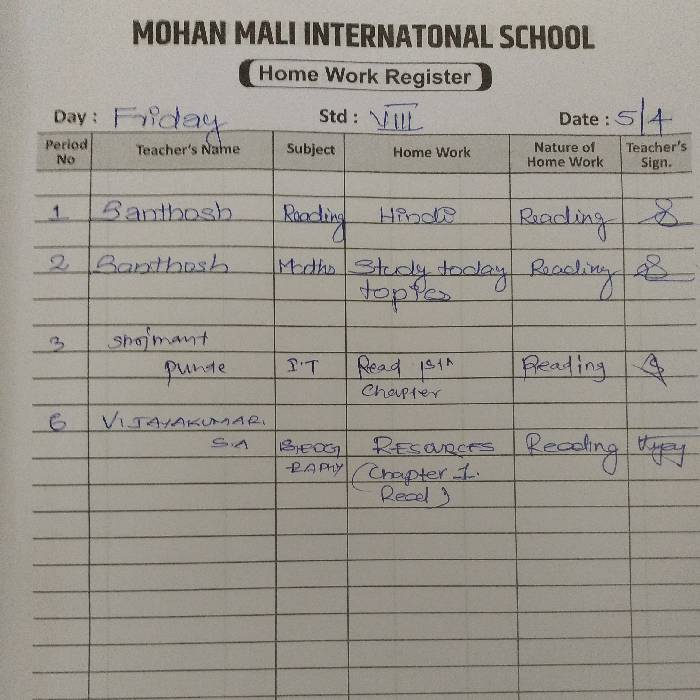 MOHAN MALI INTERNATONAL SCHOOL
Home Work Register
Day : Friday Std : VIII Date : 5/4
Period No Teacher's Name Subject Home Work Nature of Home Work Teacher's Sign.
1 Santhosh Reading Hindi Reading
2 Santhosh Maths Study today Reading
topics
3
I.T Read 1st Reading
chapter
6 VIJAYAKUMAR.
S.A GEOG RESOURCES Reading Vijay
RAPHY (Chapter 1.
Read)